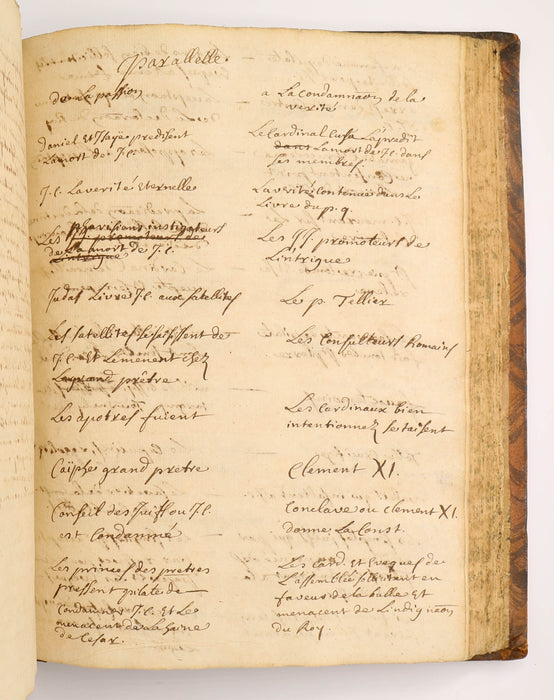 Parallelle
de la passion
a La Condamnaõn de la
verité
Daniel Et Isaye predisent
La mort de J.C.
Le Cardinal Cusa La predit
dans La mort de J.C. dans
ses membres
J.C. La verité Eternelle
La verité Contenüe dans Le
Livre du p. q.
Les pharisiens instigateurs
de La mort de J.C.
Les JJ. promoteurs de
L'intrigue
Judas Livre J.C. aux satellites
Le p. Tellier
Les satellites se saisissent de
J.C. Et Lemenent chez
Le grand prêtre.
Les Consulteurs Romains
Les apotres fuient
Les Cardinaux bien
intentionnez se taisent
Caïphe grand pretre
Clement XI.
Conseil des Juifs ou J.C.
est Condamné
Conclave ou Clement XI.
donne La Const.
Les princes des pretres
pressent pilate de
Condamner J.C. Et Le
menacent de La haine
de Cesar.
Les Card. Et Eveques de
L'assemblée sollicitent en
faveur de la bulle Et
menacent de L'indignaõn
du Roy.